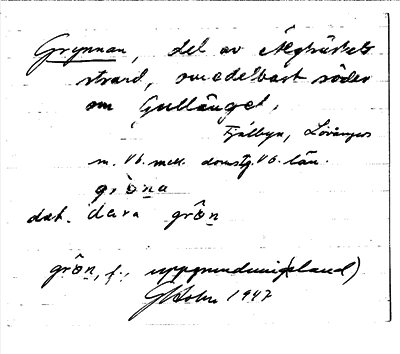 Grynnan, del av Älgträskets
strand, omedelbart söder
om Gullänget,
Fjälbyn, Lövångers
n. Vb. mell. domstg. Vb. län.
gròna
dat. dara grôn
grôn, f., uppgrundning (i land)
GHolm 1947